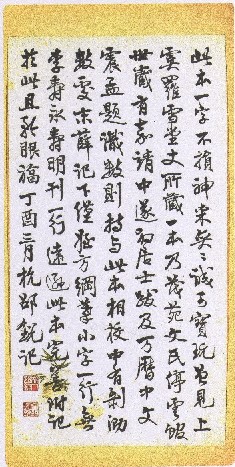 此本一字不損神采奕奕誠可寶玩曾見上
虞羅雪堂丈所藏一本乃茂苑文氏停雲館
世藏首嘉靖中逐初居士跋及萬曆中文
震孟題識數則持与此本相校中有剝泐
數處末薛記下僅後方綱摹小字一行無
李壽永壽明刊一行遠遜此本完善附記
於此且誌眼福丁酉二月杭鄒銳記